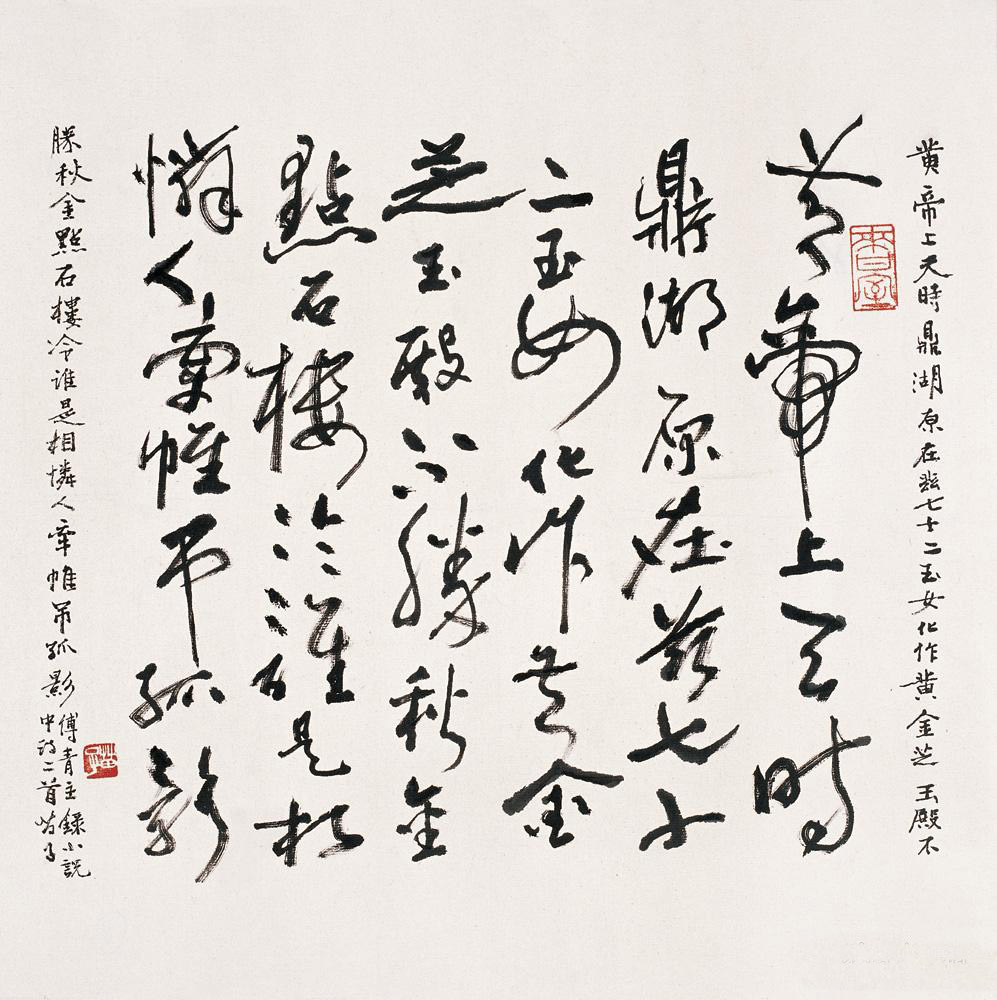 黄帝上天時鼎湖原在茲七十二玉女化作黄金芝玉殿不
黄帝上天時
鼎湖原在茲七十
二玉女化作黄金
芝玉殿不勝秋金
點石樓冷誰是相
憐人搴帷弔孤影
勝秋金點石樓冷誰是相憐人搴帷吊孤影
傅青主錄小說
中詩二首苗子